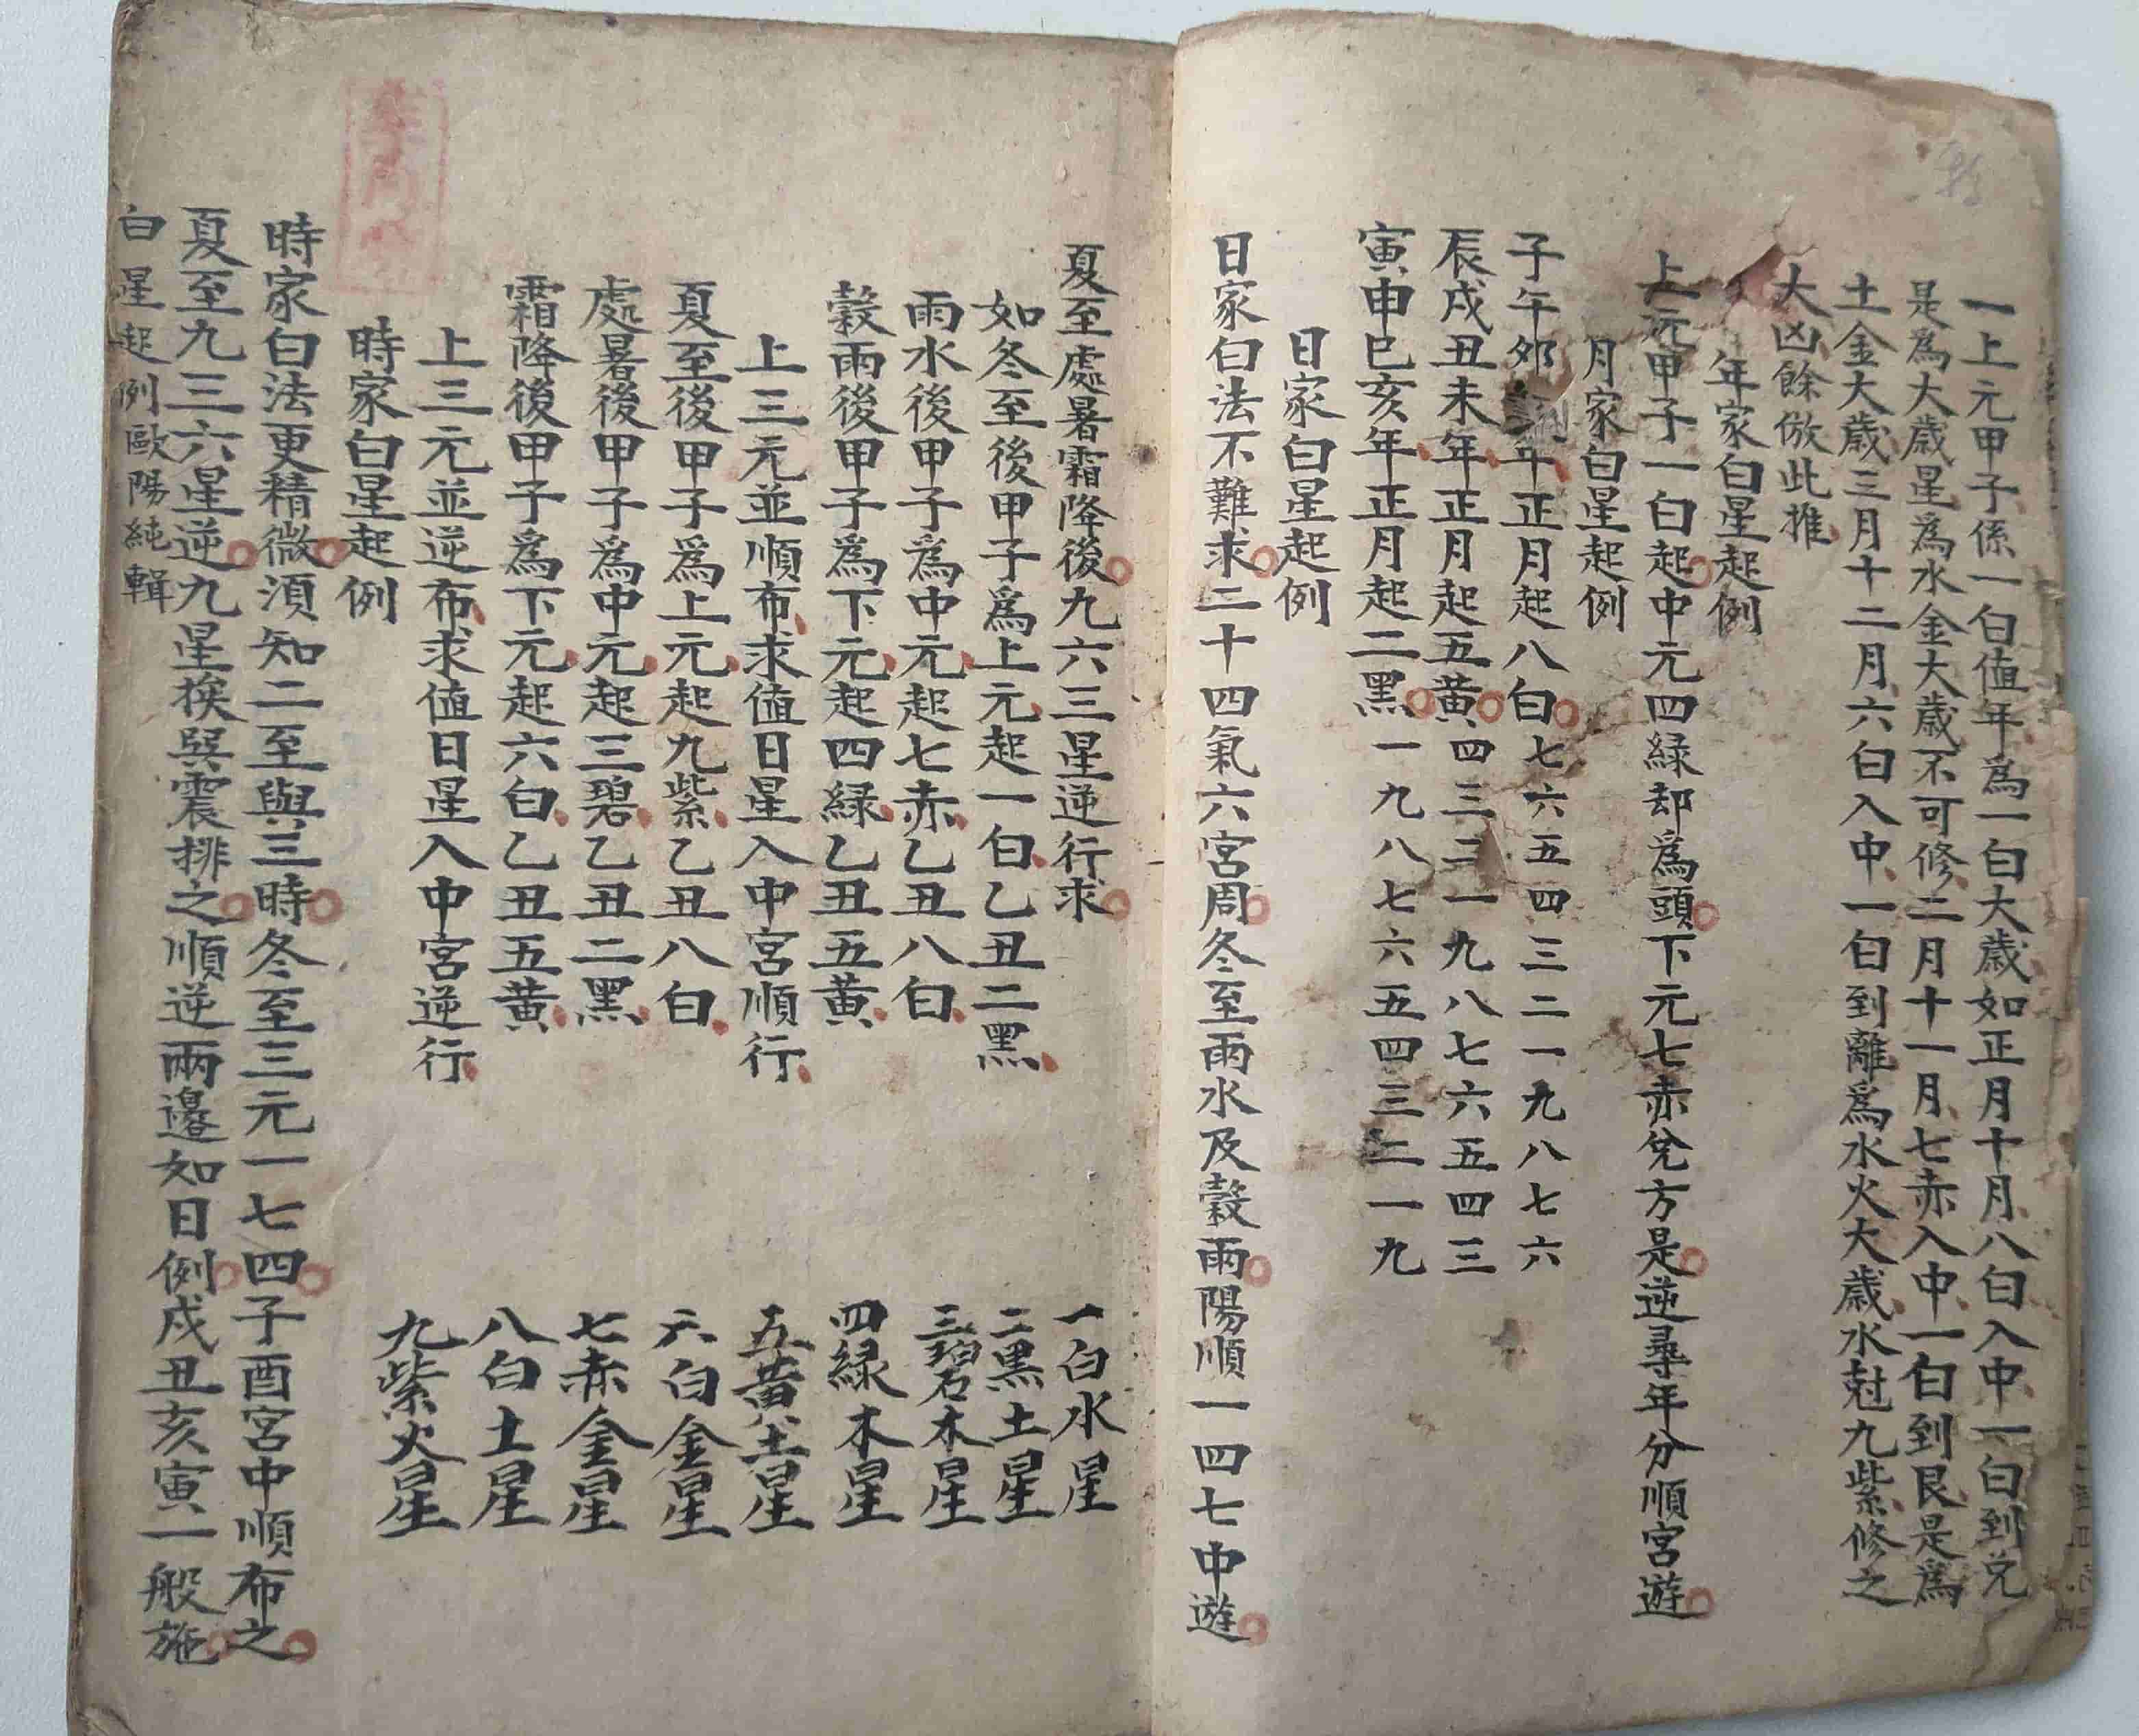 一上元甲子係一白值年爲一白大歲如正月十月八白入中一白到兌
是爲大歲星爲水金大歲不可修二月十一月七赤入中一白到艮是爲
土金大歲三月十二月六白入中一白到離爲水火大歲水尅九紫修之
大凶餘倣此推
年家白星起例
上元甲子一白起中元四緑却爲頭下元七赤兌方是逆尋年分順宮遊
月家白星起例
子午夘年正月起八白七六五四三二一九八七六
辰戌丑未年正月起五黃四三二一九八七六五四三
寅申巳亥年正月起二黑一九八七六五四三二一九
日家白星起例
日家白法不難求二十四氣六宮周冬至雨水及穀雨陽順一四七中遊
夏至處暑霜降後九六三星逆行求
如冬至後甲子爲上元起一白乙丑二黑
雨水後甲子爲中元起七赤乙丑八白
穀雨後甲子爲下元起四緑乙丑五黃
上三元並順布求值日星入中宮順行
夏至後甲子爲上元起九紫乙丑八白
處暑後甲子爲中元起三碧乙丑二黑
霜降後甲子爲下元起六白乙丑五黃
上三元並逆布求值日星入中宮逆行
一白水星
二黑土星
三碧木星
四緑木星
五黃土星
六白金星
七赤金星
八白土星
九紫火星
時家白星起例
時家白法更精微湏知二至與三時冬至三元一七四子酉宮中順布之
夏至九三六星逆九星挨巽震排之順逆兩邉如日例戌丑亥寅一般施
白星起例歐陽純輯